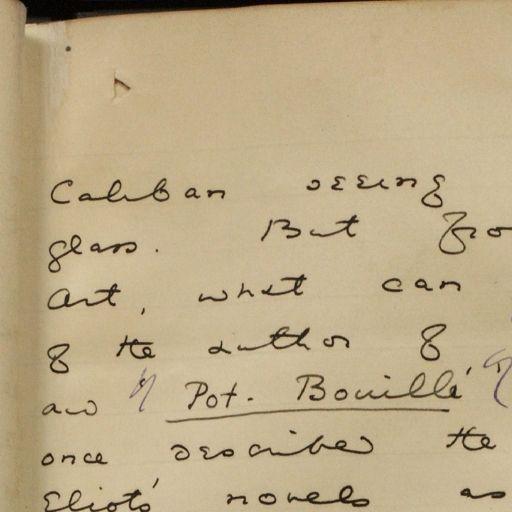 Caliban seeing
glass. But fro
Art, what can
of the author of
and Pot. Bouillé
once described the
Eliot's novels as